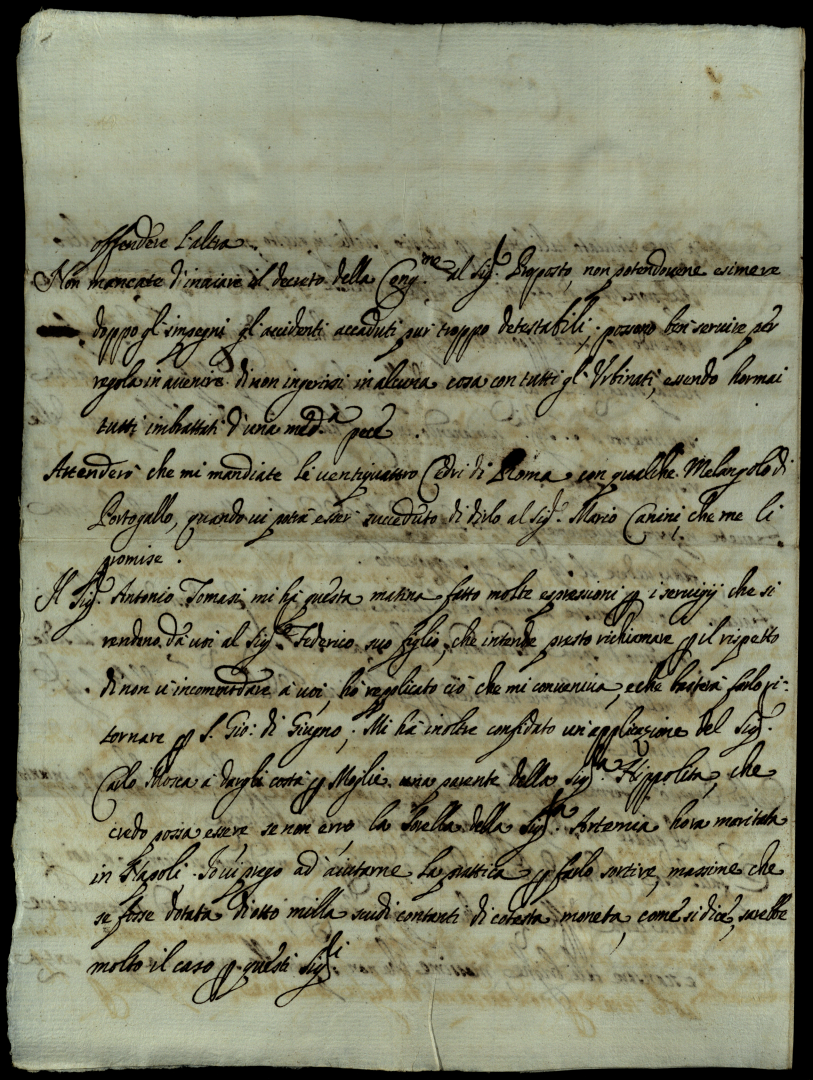 offendere l'altra.
Non mancate d'inviare il decreto della Cong.ne al Sig.r Preposto, non potendovene esimere
doppo gl'impegni gl'accidenti accaduti pur troppo detestabili. possono ben servire per
regola in avvenire di non ingerirsi in alcuna cosa con tutti gl'Urbinati, essendo hormai
tutti imbrattati d'una med.a pece.
Attenderò che mi mandiate le ventiquattro Cedri di Roma con qualche Melangolo di
Portogallo, quando vi potrà esser succeduto di dirlo al Sig.r Mario Canini che me li
promise.
Il Sig.r Antonio Tomasi mi hà questa matina fatto molte espressioni p i servigij che si
rendono dà voi al Sig.r Federico suo figlio, che intende presto richiamare p il rispetto
di non v'incommodare à voi, hò replicato ciò che mi conveniva, e che basterà farlo ri-
tornare p S. Gio: di Giugno; Mi hà inoltre confidato un'applicazione del Sig.r
Carlo Mosca à dargli costà p Moglie una parente della Sig.ra Hippolita, che
credo possa essere se non erro la sorella della Sig.ra Artemia hora maritata
in Napoli. Io vi prego ad aiutarne la prattica p farlo sortire, massime che
se fosse dotata di otto milla scudi contanti di cotesta moneta, come si dice, sarebbe
molto il caso p questi Sig.ri